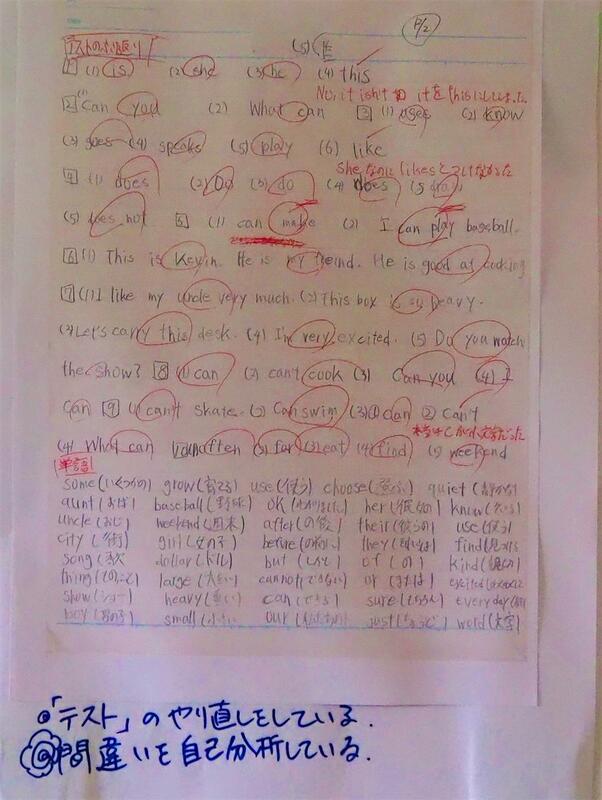 P/2
テストのふり返り
(5) 生
1 (1) is (2) she (3) he (4) this
No, it isn't の itをthisにしてしまった。
2 (1) Can you (2) What can 3 (1) uses (2) know
(3) goes (4) speaks (5) play (6) like
Sheなのにlikesとつけなかった
4 (1) does (2) Do (3) do (4) does (5)
(5) does not 5 (1) can make (2) I can play baseball.
6 (1) This is Kevin. He is my freind. He is good at cooking
7 (1) I like my uncle very much. (2) This box is so heavy.
(3) Let's carry this desk. (4) I'm very excited. (5) Do you watch
the show? 8 (1) can (2) can't cook (3) Can you (4) I
can 9 (1) can't skate. (2) Can swim (3) ① can ② Can't
本当はcが小文字だった
(4) What can often (2) far (3) eat (4) find (5) weekend
単語
some (いくつかの) grow (育てる) use (使う) choose (選ぶ) quiet (静かな)
aunt (おば) baseball (野球) ok her (彼女の) know
uncle (おじ) weekend (週末) after (の後) their (彼らの) use (使う)
city (街) girl (女の子) before (の前に) they find
song (歌) dollar (ドル) but of (の) kind
thing large (大きい) cannot (できない) or (または) excited
show (ショー) heavy (重い) can (できる) sure (もちろん) every day
boy (男の子) small (小さい) our just (ちょうど) word (文字)
•「テスト」のやり直しをしている.
間違いを自己分析している.